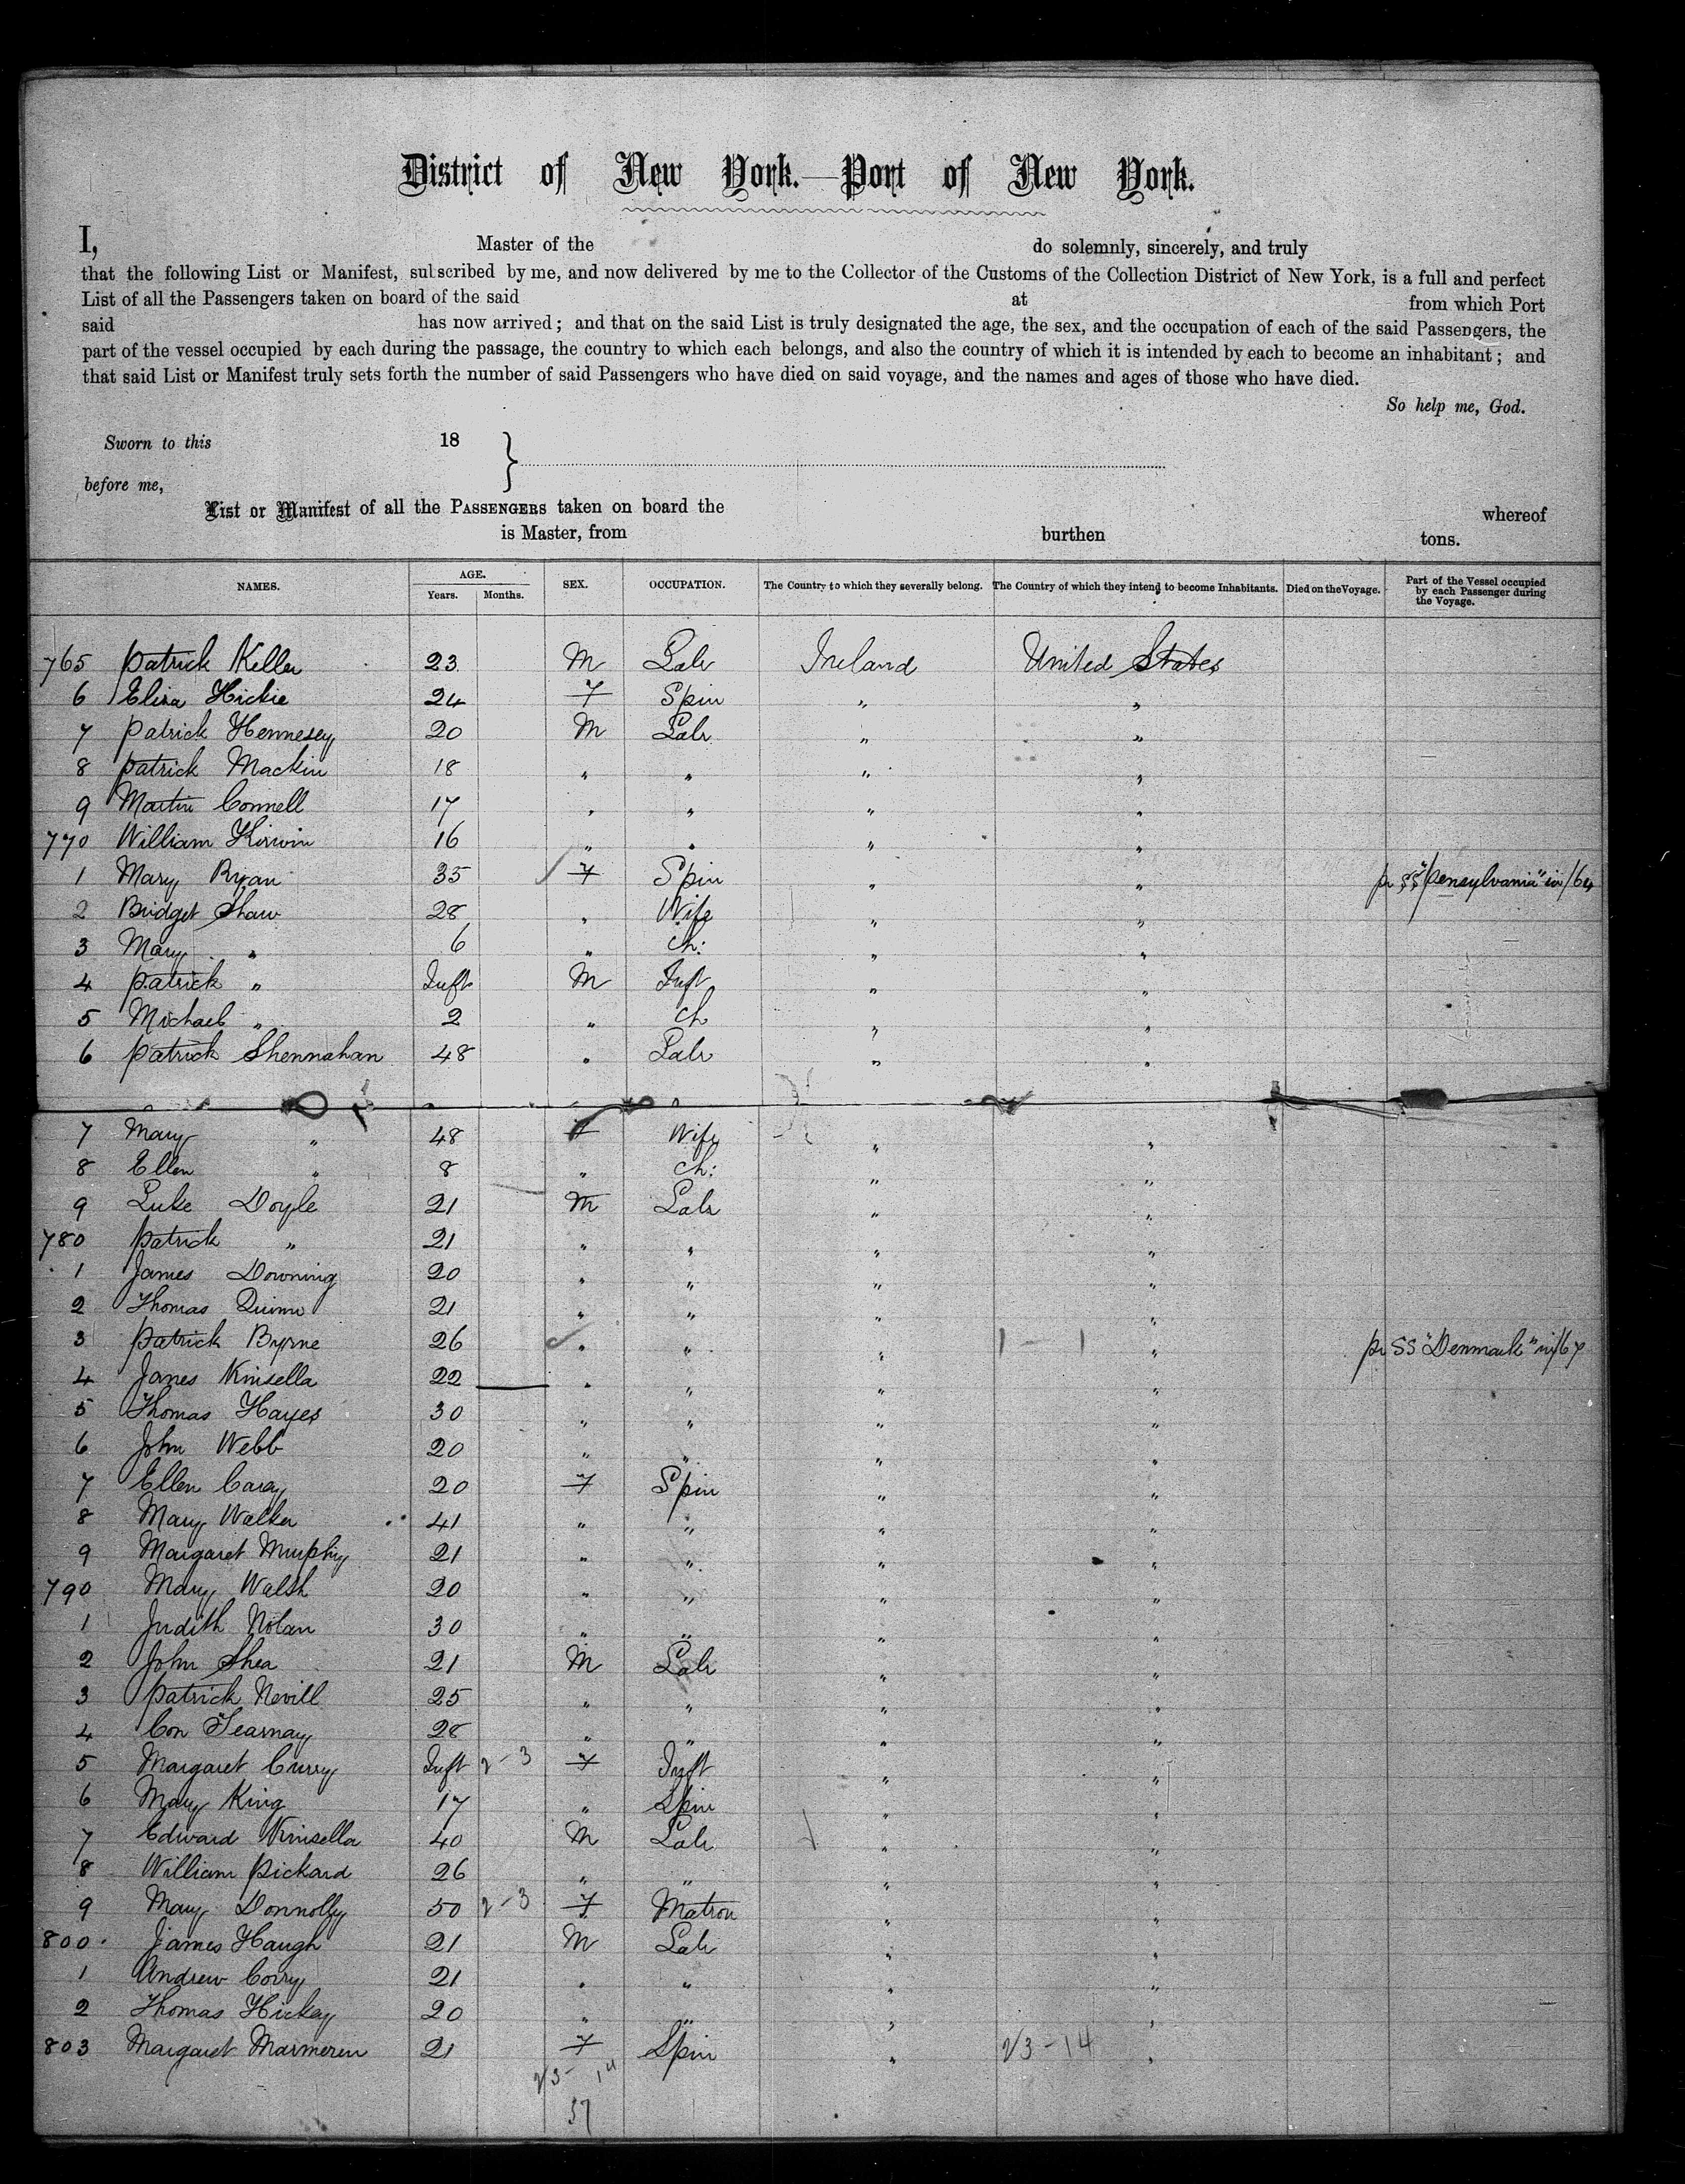 District of New York.—Port of New York.
I, Master of the do solemnly, sincerely, and truly
that the following List or Manifest, subscribed by me, and now delivered by me to the Collector of the Customs of the Collection District of New York, is a full and perfect
List of all the Passengers taken on board of the said at from which Port
said has now arrived; and that on the said List is truly designated the age, the sex, and the occupation of each of the said Passengers, the
part of the vessel occupied by each during the passage, the country to which each belongs, and also the country of which it is intended by each to become an inhabitant; and
that said List or Manifest truly sets forth the number of said Passengers who have died on said voyage, and the names and ages of those who have died.
So help me, God.
Sworn to this 18
before me,
List or Manifest of all the PASSENGERS taken on board the whereof
is Master, from burthen tons.
NAMES. AGE. Years. Months. SEX. OCCUPATION. The Country to which they severally belong. The Country of which they intend to become Inhabitants. Died on the Voyage. Part of the Vessel occupied by each Passenger during the Voyage.
765 Patrick Keller 23 M Labr Ireland United States
6 Eliza Hickie 24 F Spin " "
7 Patrick Hennesey 20 M Labr " "
8 Patrick Mackin 18 " " " "
9 Martin Connell 17 " " " "
770 William Kirwin 16 " " " "
1 Mary Ryan 35 F Spin " " pr SS "Pensylvania" in /64
2 Bridget Shaw 28 " Wife " "
3 Mary " 6 " Ch: " "
4 Patrick " Inft M Inft " "
5 Michael " 2 " Ch " "
6 Patrick Shennahan 48 " Labr " "
7 Mary " 48 F Wife " "
8 Ellen " 8 " Ch: " "
9 Luke Doyle 21 M Labr " "
780 Patrick " 21 " " " "
1 James Downing 20 " " " "
2 Thomas Quinn 21 " " " "
3 Patrick Byrne 26 " " " 1 - 1 " pr SS "Denmark" in /67
4 James Kinsella 22 " " " "
5 Thomas Hayes 30 " " " "
6 John Webb 20 " " " "
7 Ellen Cary 20 F Spin " "
8 Mary Walker 41 " " " "
9 Margaret Murphy 21 " " " "
790 Mary Walsh 20 " " " "
1 Judith Nolan 30 " " " "
2 John Shea 21 M Labr " "
3 Patrick Nevill 25 " " " "
4 Con 28 " " " "
5 Margaret Curry Inft 2-3 F Inft " "
6 Mary King 17 " Spin " "
7 Edward Kinsella 40 M Labr " "
8 William Pickard 26 " " " "
9 Mary Donnolly 50 2-3 F Matron " "
800 James Haugh 21 M Labr " "
1 Andrew Corry 21 " " " "
2 Thomas Hickey 20 " " " "
803 Margaret 21 F Spin " 23-14 "
23-14
37